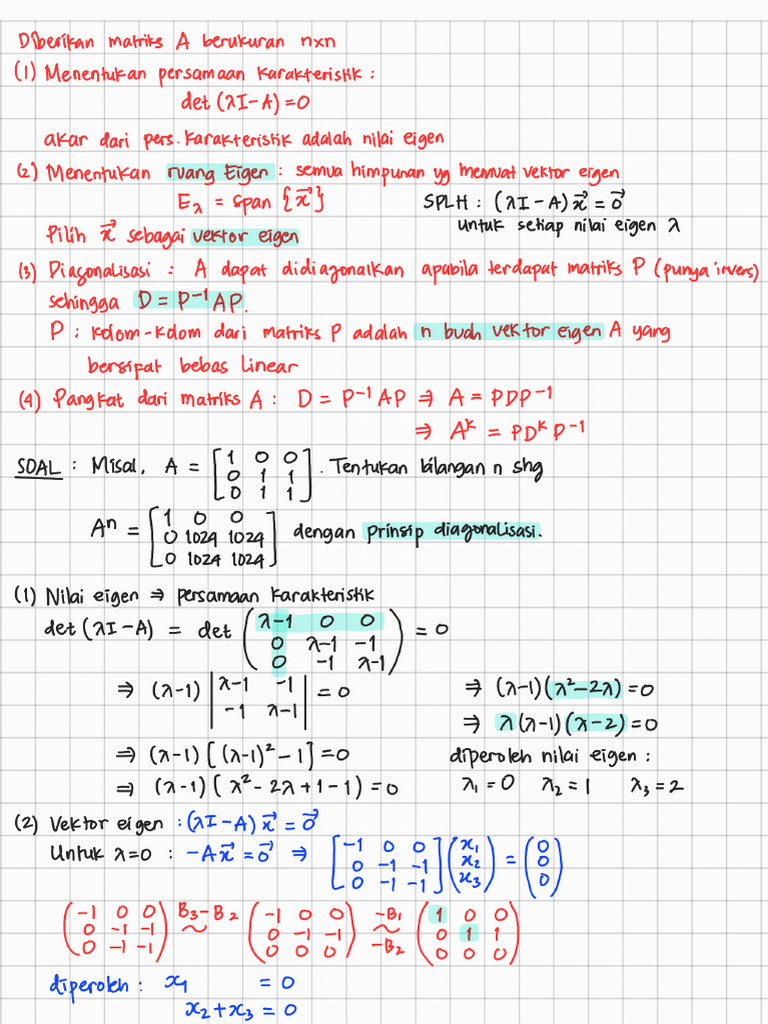 Diberikan matriks A berukuran nxn
(1) Menentukan persamaan karakteristik :
det (λI-A) = 0
akar dari pers. karakteristik adalah nilai eigen
(2) Menentukan ruang Eigen : semua himpunan yg memuat vektor eigen
E_λ = span {x⃗} SPLH : (λI-A)x⃗ = 0⃗
untuk setiap nilai eigen λ
Pilih x⃗ sebagai vektor eigen
(3) Diagonalisasi : A dapat didiagonalkan apabila terdapat matriks P (punya invers)
sehingga D = P⁻¹AP.
P : kolom-kolom dari matriks P adalah n buah vektor eigen A yang
bersifat bebas linear
(4) Pangkat dari matriks A : D = P⁻¹AP ⇒ A = PDP⁻¹
⇒ Aᵏ = PDᵏP⁻¹
SOAL : Misal, A = [1 0 0; 0 1 1; 0 1 1]. Tentukan bilangan n shg
Aⁿ = [1 0 0; 0 1024 1024; 0 1024 1024] dengan prinsip diagonalisasi.
(1) Nilai eigen ⇒ persamaan karakteristik
det (λI-A) = det (λ-1 0 0; 0 λ-1 -1; 0 -1 λ-1) = 0
⇒ (λ-1) |λ-1 -1; -1 λ-1| = 0
⇒ (λ-1) [(λ-1)² - 1] = 0
⇒ (λ-1) (λ² - 2λ + 1 - 1) = 0
⇒ (λ-1) (λ² - 2λ) = 0
⇒ λ (λ-1) (λ-2) = 0
diperoleh nilai eigen :
λ₁ = 0 λ₂ = 1 λ₃ = 2
(2) Vektor eigen : (λI-A) x⃗ = 0⃗
Untuk λ=0 : -Ax⃗ = 0⃗ ⇒ [-1 0 0; 0 -1 -1; 0 -1 -1] (x₁; x₂; x₃) = (0; 0; 0)
(-1 0 0; 0 -1 -1; 0 -1 -1) B₃-B₂ ~ (-1 0 0; 0 -1 -1; 0 0 0) -B₁ ~ -B₂ (1 0 0; 0 1 1; 0 0 0)
diperoleh : x₁ = 0
x₂ + x₃ = 0